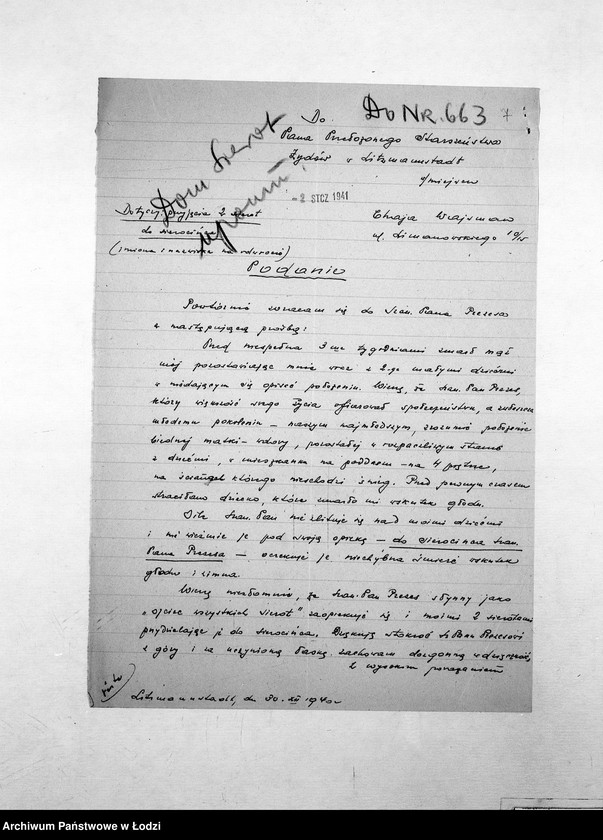 Do NR. 663 7
Do
Pana Przełożonego Starszeństwa
Żydów w Litzmannstadt
w/miejscu
Dom Sierot
- 2 STCZ 1941
Dotyczy: przyjęcia 2 sierot
do sierocińca
(imiona i nazwiska na odwrocie)
Chaja Wajsman
ul. Limanowskiego
Podanie
Powtórnie zwracam się do Szan. Pana Prezesa
z następującą prośbą:
Przed niespełna 3-ma tygodniami zmarł mąż
mój pozostawiając mnie wraz z 2-ga małymi dziećmi
w niedającym się opisać położeniu. Wierzę, że Szan. Pan Prezes,
który większość swego życia ofiarował społeczeństwu, a zwłaszcza
młodemu pokoleniu – naszym najmłodszym, zrozumie położenie
biednej matki-wdowy, pozostałej w rozpaczliwym stanie
z dziećmi, w mieszkaniu na poddaszu – na 4 piętrze,
na ścianach którego nieschodzi śnieg. Przed pewnym czasem
straciłam dziecko, które zmarło mi wskutek głodu.
Jeśli Szan. Pan nie zlituje się nad moimi dziećmi
i nie weźmie je pod swoją opiekę – do Sierocińca Szan.
Pana Prezesa – oczekuje je niechybna śmierć wskutek
głodu i zimna.
Wierzę niezłomnie, że Szan. Pan Prezes słynny jako
"ojciec wszystkich sierot" zaopiekuje się i moimi 2 sierotami
przydzielając je do sierocińca. Dziękuję stokroć Sz. Panu Prezesowi
z góry i za uczynioną łaskę zachowam dozgonną wdzięczność,
z wysokim poważaniem
Litzmannstadt, dn. 30. XII 1940 r
Archiwum Państwowe w Łodzi